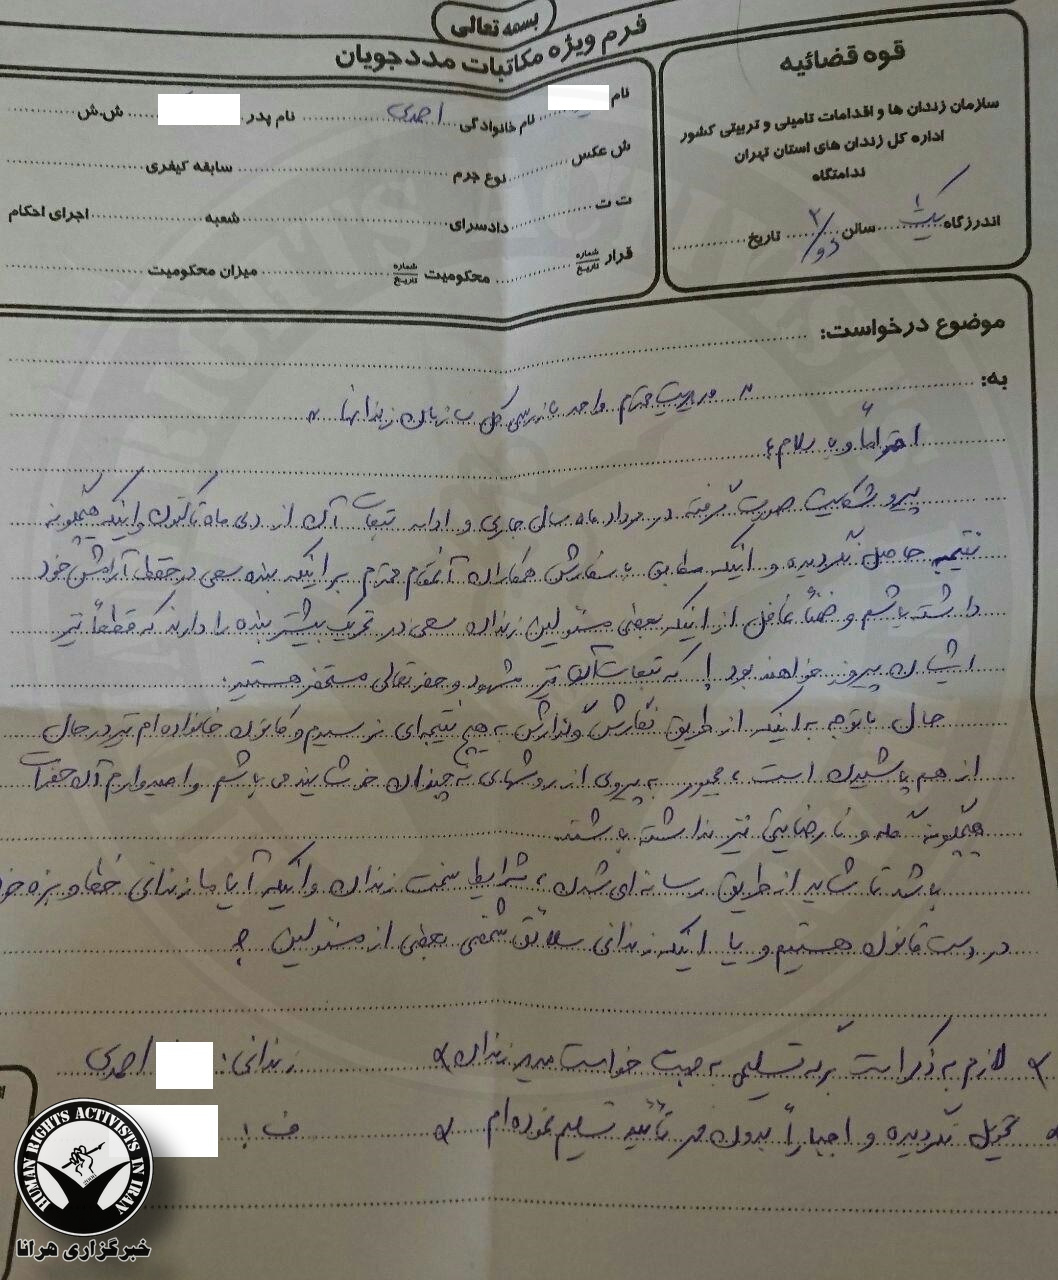 بسمه تعالی
فرم ویژه مکاتبات مددجویان
قوه قضائیه
سازمان زندان ها و اقدامات تامینی و تربیتی کشور
اداره کل زندان های استان تهران
ندامتگاه
اندرزگاه ۱ یک سالن ۲ / دو تاریخ
نام نام خانوادگی احمدی نام پدر ش.ش
ش عکس نوع جرم سابقه کیفری
ت ت دادسرای شعبه اجرای احکام
قرار شماره تاریخ محکومیت شماره تاریخ میزان محکومیت
موضوع درخواست:
به:
مدیریت محترم واحد بازرسی کل سازمان زندانها
احتراماً و با سلام؛
پیرو شکایت صورت گرفته در مرداد ماه سال جاری و ادامه تبعات آن از دی ماه تاکنون و اینکه هیچگونه
نتیجه حاصل نگردیده و اینکه مطابق با سفارش همکاران آنمقام محترم بر اینکه بنده سعی در حفظ آرامش خود
داشته باشم و ضمناً غافل از اینکه بعضی مسئولین زندان سعی در تحریک بیشتر بنده را دارند که قطعاً نیز
ایشان پیروز خواهند بود که تبعات آن نیز مشهود و حضرتعالی مستحضر هستید.
حال با توجه به اینکه از طریق نگارش و گزارش به هیچ نتیجه‌ای نرسیدم و کانون خانواده ام نیز در حال
از هم پاشیدن است، مجبور به پیروی از روشهای نه چندان خوشایند می باشم و امیدوارم آن حضرات
هیچگونه گله و نارضایتی نیز نداشته باشند.
باشد تا شاید از طریق رسانه ای شدن، شرایط سخت زندان و اینکه آیا ما زندانی خطا و بزه خود
در دست قانون هستیم و یا اینکه زندانی سلائق شخصی بعضی از مسئولین؟
لازم به ذکر است برگه تسلیمی به جهت خواست مدیر زندان زندانی: احمدی
تحویل نگردیده و اجباراً بدون مهر تأئید تسلیم نموده ام ف:
HUMAN RIGHTS ACTIVISTS IN IRAN
خبرگزاری هرانا